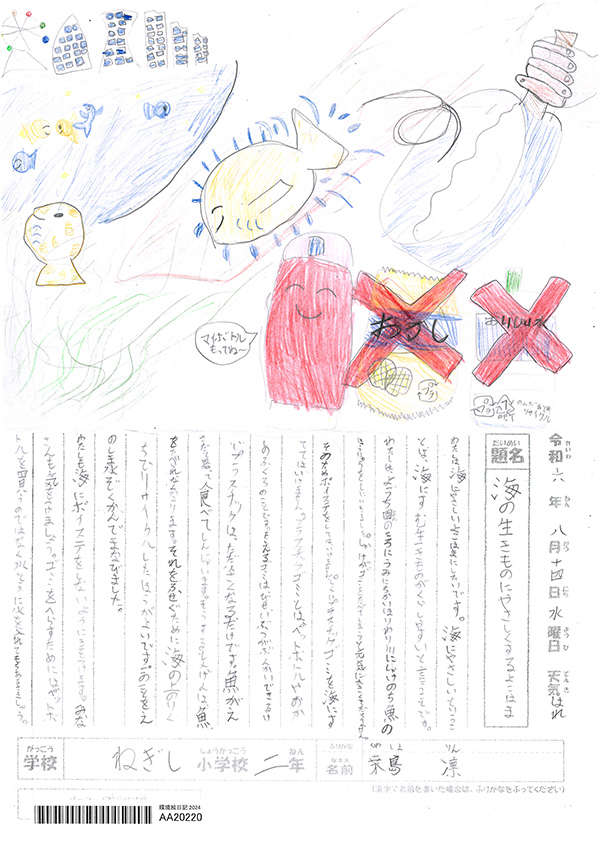 マイボトル
もってね〜
おかし
おいしい水
プラ
プラ
PET
のんだあとは
リサイクル
れいわ ねん がつ にち ようび てんき
令和六年八月十四日水曜日天気はれ
だいめい
題名
海の生きものにやさしくするよこはま
わたしは、海にやさしいよこはまにしたいです。海にやさしいということ
とは、海にすむ生きものがくらしやすいと言うことです。
そのためポイすてをしてはいけません。
てではいけません。プラスチックゴミとは、ペットボトルやおか
しのふくろのことです。もえるゴミはびせいぶつがぶんかいできるけ
ど、プラスチックは、ただ小さくなるだけです。魚がえ
さだと思って食べてしんでしまいます。
をたべなくなります。それをふせぐために海の上のりく
ちでリサイクルしたほうがよいです。のことをえ
のしま水ぞくかんでまなびました。
わたしも海にポイすてをしないように気をつけます。みな
さんも気をつけましょう。ゴミをへらすためにはペットボ
トルを買うのではなく水とうに水を入れてもちあるきましょう。
がっこう しょうがっこう ねん ふりがな
学校 ねぎし小学校 二年 名前 菜島 凛
環境絵日記 2024
AA20220